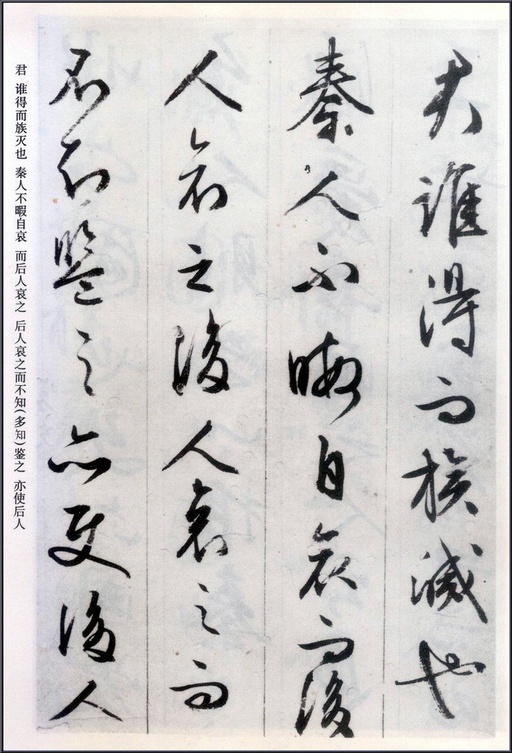 君誰得而族滅也
秦人不暇自哀而後
人哀之後人哀之而
不知鑒之亦使後人
君 谁得而族灭也 秦人不暇自哀 而后人哀之 后人哀之而不知(多知)鉴之 亦使后人